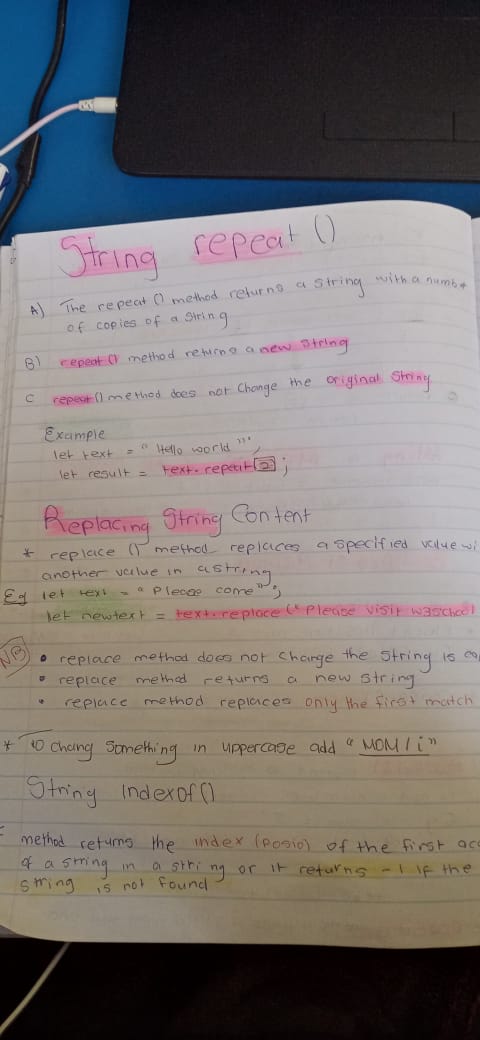 String repeat ()
A) The repeat () method returns a string with a numbe
of copies of a string
B) repeat () method returns a new string
C repeat () method does not change the original string
Example
let text = "Hello world !";
let result = text.repeat[2];
Replacing String Content
* replace () method replaces a specified value wi
another value in a string
Eg let text = "Please come";
let newtext = text.replace ("Please visit w3school
NB • replace method does not change the string is ca
• replace method returns a new string
• replace method replaces only the first match
* To chang something in uppercase add "MOM/i"
String Indexof ()
method returns the index (posio) of the first occ
of a string in a string or it returns -1 if the
string is not found